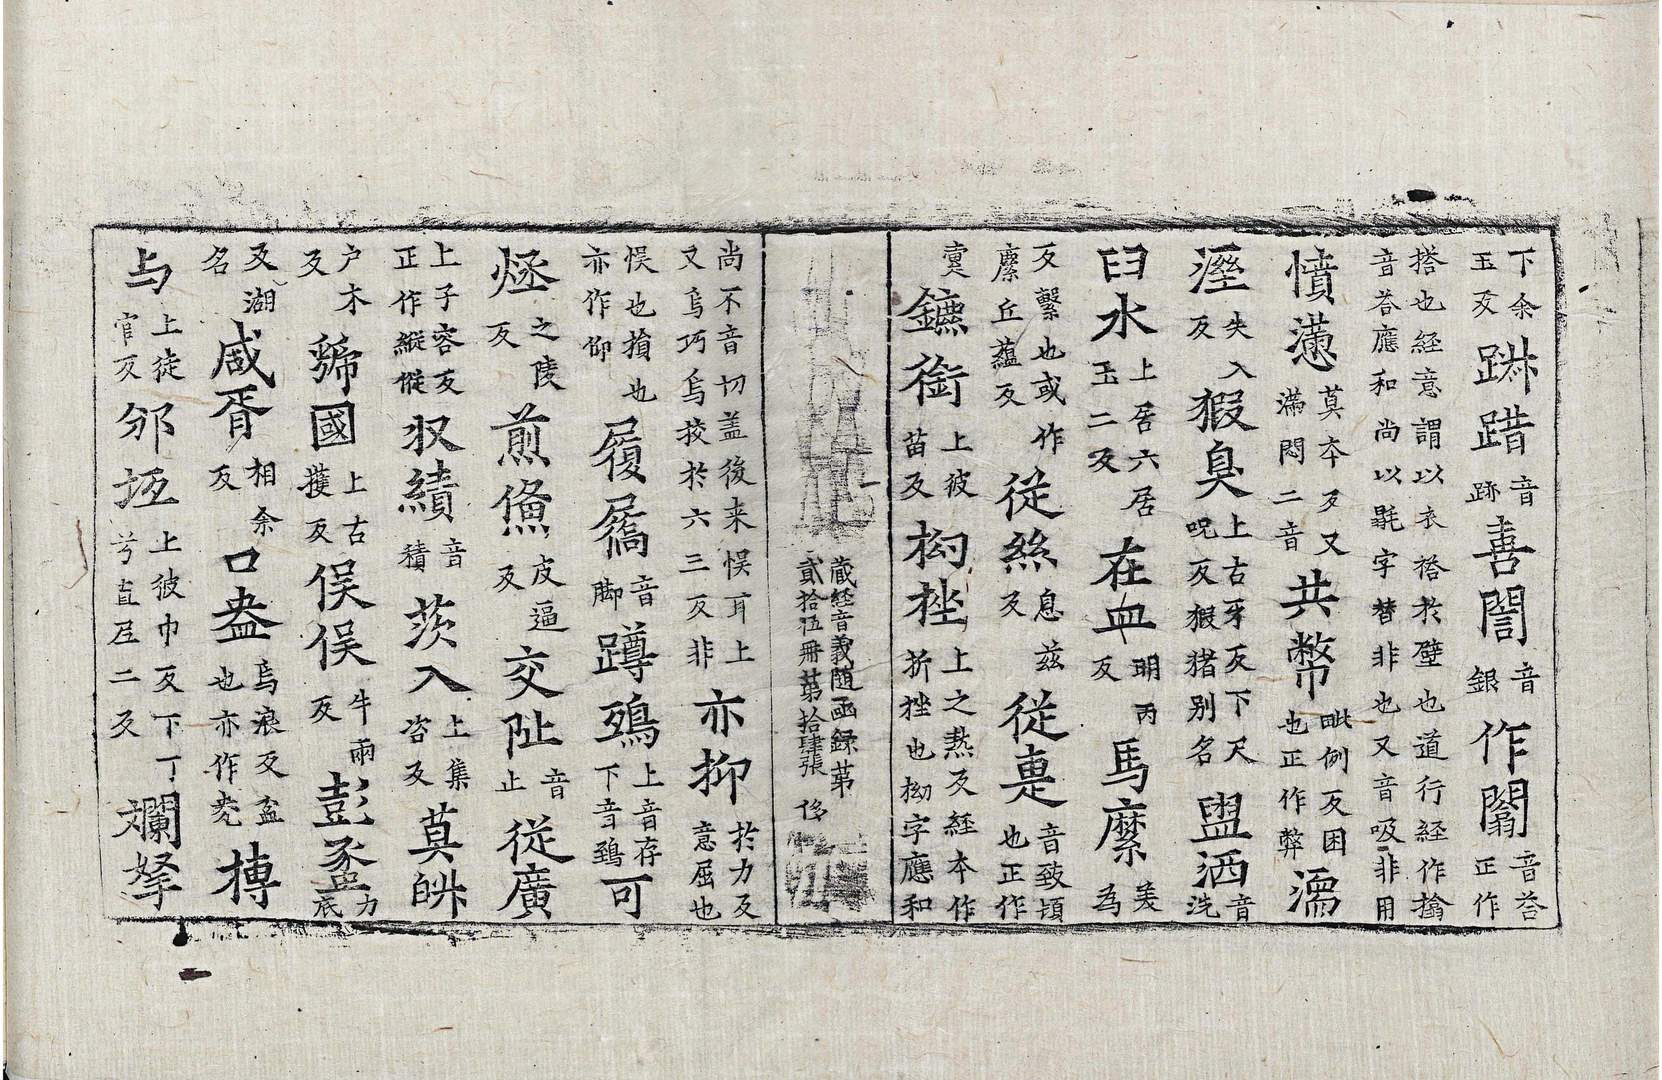 下余玉反 踧踖音跡 善誾音銀 作闟音荅正作
搭也經意謂以衣荅於壁也道行經作搶音荅應和尚以毾字替非也又音吸非用
憤懣莫本反又滿悶二音 共幣毗例反困也正作弊 濡
溼失入反 猳臭上古牙反下尺呪反猳猪别名 盥洒音洗
臼水上居六居玉二反 在皿明丙反 馬縻美為
反繫也或作縻丘蘊反 從絲息兹反 從疐音致頓也正作
疐 鑣銜上彼苗反 㧕挫上之熱反經本作折挫也㧕字應和
藏經音義隨函録第貳拾伍冊第拾肆張 侈
尚不音切盖後来悮耳上又烏巧烏挍於六三反非 亦抑於力反意屈也
悮也損也亦作仰 履屩音脚 蹲鵄上音存下音鵄 可
烝之陵反 煎㷶皮逼反 交阯音止 從廣
上子容反正作縱㯶 収績音積 茨入上集咨反 莫衂
户木反 虢國上古獲反 俣俣牛雨反 彭盭力底
反湖名 咸胥相余反 口盎烏浪反盆也亦作㼜 摶
与上徒官反 邠垣上彼巾反下丁兮直𡰱二反 斕拏